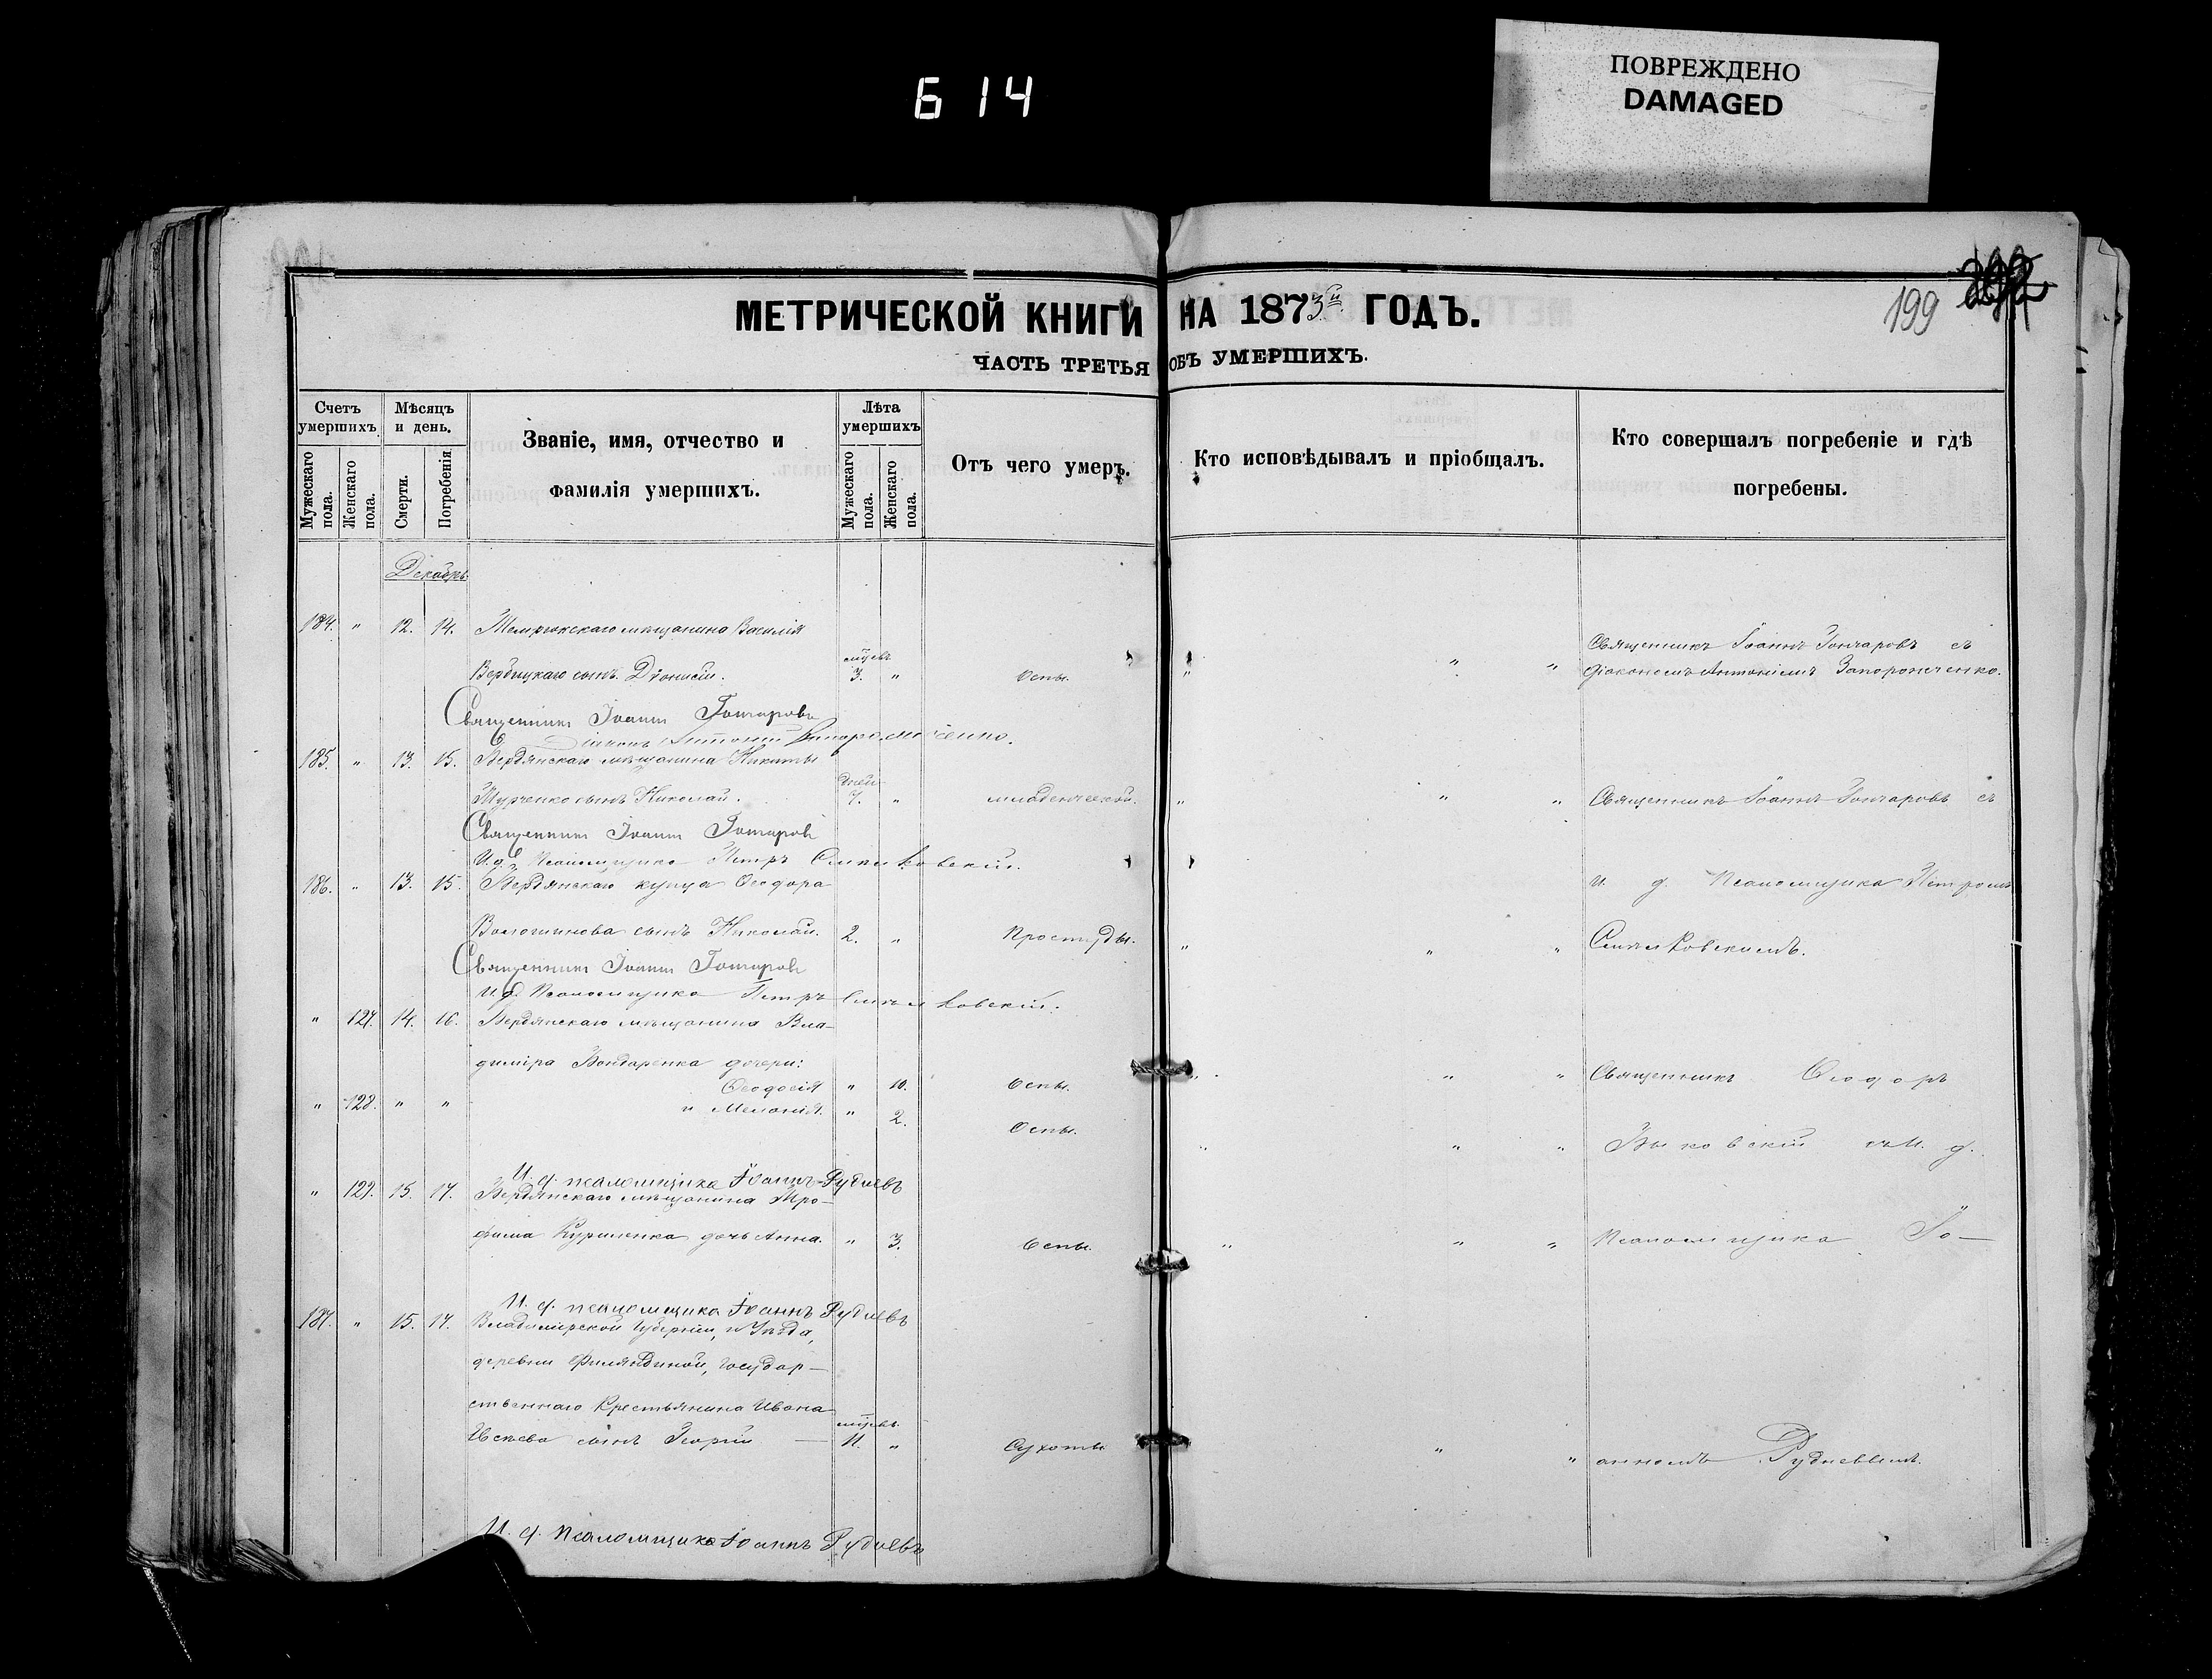 614
ПОВРЕЖДЕНО
DAMAGED
199
МЕТРИЧЕСКОЙ КНИГИ НА 1873й ГОДЪ.
ЧАСТЬ ТРЕТЬЯ ОБЪ УМЕРШИХЪ.
Счетъ умершихъ.
Мужескаго пола.
Женскаго пола.
Мѣсяцъ и день.
Смерти.
Погребенія.
Званіе, имя, отчество и
фамилія умершихъ.
Лѣта умершихъ
Мужескаго пола.
Женскаго пола.
Отъ чего умеръ.
Кто исповѣдывалъ и пріобщалъ.
Кто совершалъ погребеніе и гдѣ
погребены.
Декабрь
184. " 12. 14. мѣщанина Василія
Вербицкаго сынъ Діонисій. мѣсцвъ 3. " Оспы. " " "
Священникъ Іоаннъ Гончаровъ съ
діакономъ Антоніемъ Запорожченко.
Священникъ Іоаннъ Гончаровъ
Діаконъ Антоній Запорожченко.
185. " 13. 15. Бердянскаго мѣщанина Никиты
сынъ Николай. дней 7. " младенческой. " " " Священникъ Іоаннъ Гончаровъ съ
Священникъ Іоаннъ Гончаровъ
И. д. Псаломщика Петръ
186. " 13. 15. Бердянскаго купца Ѳеодора
И. д. Псаломщика Петромъ
Волошинова сынъ Николай. 2. " Простуды. " " "
Священникъ Іоаннъ Гончаровъ
И. д. Псаломщика Петръ
" 127. 14. 16. Бердянскаго мѣщанина Вла-
диміра Бондаренка дочери:
Ѳеодосія " 10. Оспы. " " " Священникъ Ѳеодоръ
" 128. " " и Меланія. " 2. Оспы. " " " Быковскій съ И. д.
И. д. псаломщика Іоаннъ Рудневъ
" 129. 15. 17. Бердянскаго мѣщанина Тро-
фима Куриленка дочь Анна. " 3. Оспы. " " " Псаломщика Іо-
И. д. псаломщика Іоаннъ Рудневъ
187. " 15. 17. Владимірской Губерніи, и Уѣзда,
деревни Филяндиной, Государ-
ственнаго Крестьянина Ивана
сынъ Георгій — мѣсцвъ 11. " Сухоты " " анномъ Рудневымъ.
И. д. Псаломщика Іоаннъ Рудневъ